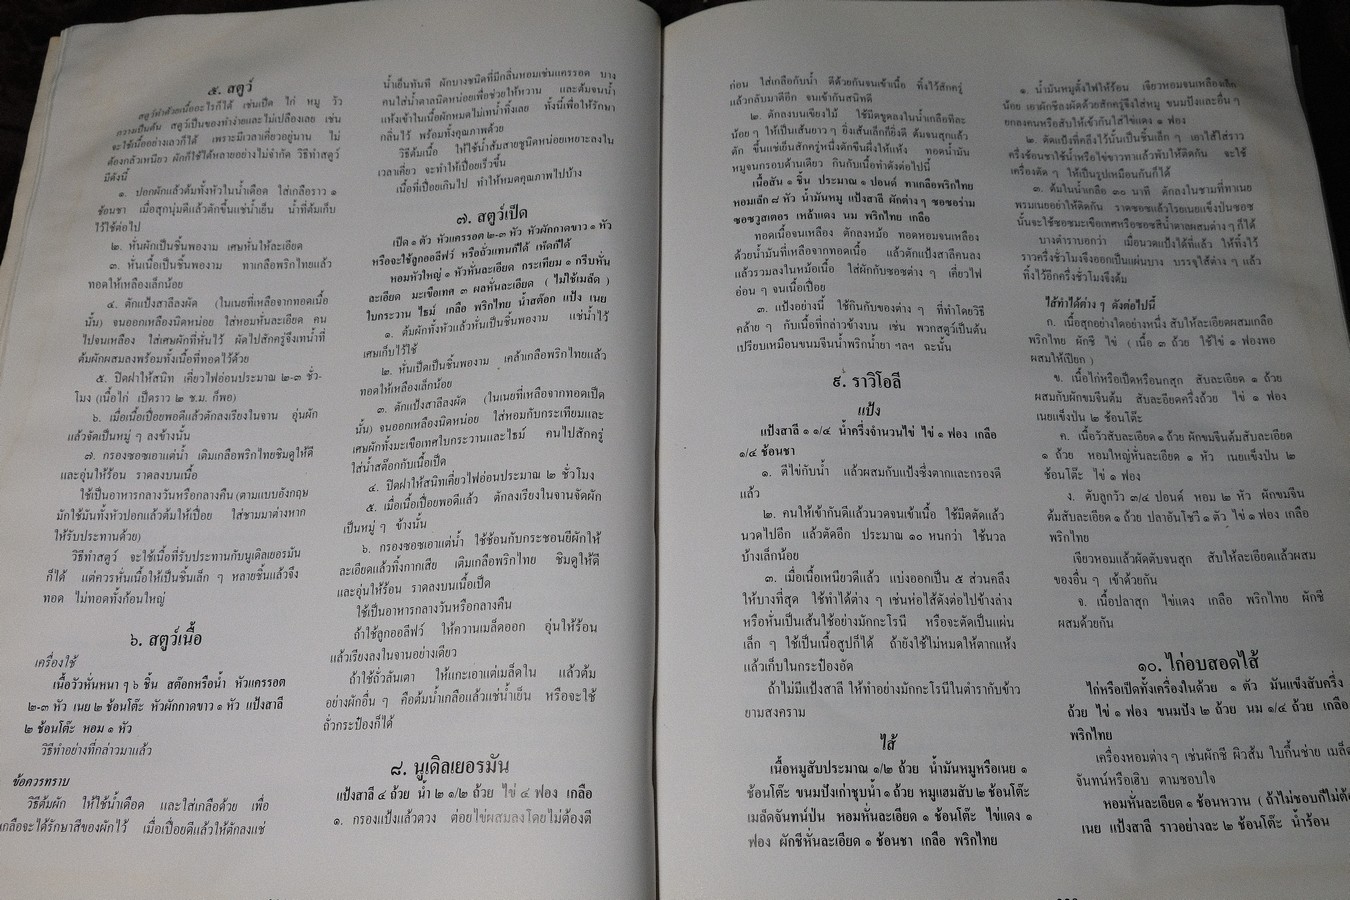 ๕. สตูว์
สตูว์ทำด้วยเนื้ออะไรก็ได้ เช่นเป็ด ไก่ หมู วัว
ควายเป็นต้น สตูว์เป็นของทำง่ายและไม่เปลืองเลย เช่น
จะใช้เนื้ออย่างเลวก็ได้ เพราะมีเวลาเคี่ยวอยู่นาน ไม่
ต้องกลัวเหนียว ผักก็ใช้ได้หลายอย่างไม่จำกัด วิธีทำสตูว์
มีดังนี้
๑. ปอกผักแล้วต้มทั้งหัวในน้ำเดือด ใส่เกลือราว ๑
ช้อนชา เมื่อสุกนุ่มดีแล้วตักขึ้นแช่น้ำเย็น น้ำที่ต้มเก็บ
ไว้ใช้ต่อไป
๒. หั่นผักเป็นชิ้นพองาม เศษหั่นให้ละเอียด
๓. หั่นเนื้อเป็นชิ้นพองาม ทาเกลือพริกไทยแล้ว
ทอดให้เหลืองเล็กน้อย
๔. ตักแป้งสาลีลงผัด (ในเนยที่เหลือจากทอดเนื้อ
นั้น) จนออกเหลืองนิดหน่อย ใส่หอมหั่นละเอียด คน
ไปจนเหลือง ใส่เศษผักที่หั่นไว้ ผัดไปสักครู่จึงเทน้ำที่
ต้มผักผสมลงพร้อมทั้งเนื้อที่ทอดไว้ด้วย
๕. ปิดฝาให้สนิท เคี่ยวไฟอ่อนประมาณ ๒-๓ ชั่ว-
โมง (เนื้อไก่ เป็ดราว ๒ ช.ม. ก็พอ)
๖. เมื่อเนื้อเปื่อยพอดีแล้วตักลงเรียงในจาน อุ่นผัก
แล้วจัดเป็นหมู่ ๆ ลงข้างนั้น
๗. กรองซอซเอาแต่น้ำ เติมเกลือพริกไทยชิมดูให้ดี
และอุ่นให้ร้อน ราดลงบนเนื้อ
ใช้เป็นอาหารกลางวันหรือกลางคืน (ตามแบบอังกฤษ
มักใช้มันทั้งหัวปอกแล้วต้มให้เปื่อย ใส่ชามมาต่างหาก
ให้รับประทานด้วย)
วิธีทำสตูว์ จะใช้เนื้อที่รับประทานกับนูเดิลเยอรมัน
ก็ได้ แต่ควรหั่นเนื้อให้เป็นชิ้นเล็ก ๆ หลายชิ้นแล้วจึง
ทอด ไม่ทอดทั้งก้อนใหญ่
๖. สตูว์เนื้อ
เครื่องใช้
เนื้อวัวหั่นหนา ๆ ๖ ชิ้น สต๊อกหรือน้ำ หัวแครรอต
๒-๓ หัว เนย ๒ ช้อนโต๊ะ หัวผักกาดขาว ๑ หัว แป้งสาลี
๒ ช้อนโต๊ะ หอม ๑ หัว
วิธีทำอย่างที่กล่าวมาแล้ว
ข้อควรทราบ
วิธีต้มผัก ให้ใช้น้ำเดือด และใส่เกลือด้วย เพื่อ
เกลือจะได้รักษาสีของผักไว้ เมื่อเปื่อยดีแล้วให้ตักลงแช่
น้ำเย็นทันที ผักบางชนิดที่มีกลิ่นหอมเช่นแครรอต บาง
คนใส่น้ำตาลนิดหน่อยเพื่อช่วยให้หวาน และต้มจนน้ำ
แห้งเข้าในเนื้อผักหมดไม่เทน้ำทิ้งเลย ทั้งนี้เพื่อให้รักษา
กลิ่นไว้ พร้อมทั้งคุณภาพด้วย
วิธีต้มเนื้อ ให้ใช้น้ำส้มสายชูนิดหน่อยเหยาะลงใน
เวลาเคี่ยว จะทำให้เปื่อยเร็วขึ้น
เนื้อที่เปื่อยเกินไป ทำให้หมดคุณภาพไปบ้าง
๗. สตูว์เป็ด
เป็ด ๑ ตัว หัวแครรอต ๒-๓ หัว หัวผักกาดขาว ๑ หัว
หรือจะใช้ลูกออลีฟว์ หรือถั่วแทนก็ได้ เห็ดก็ได้
หอมหัวใหญ่ ๑ หัวหั่นละเอียด กระเทียม ๑ กรีบหั่น
ละเอียด มะเขือเทศ ๓ ผลหั่นละเอียด ( ไม่ใช้เมล็ด )
ใบกระวาน ไธม์ เกลือ พริกไทย น้ำสต๊อก แป้ง เนย
๑. ต้มผักทั้งหัวแล้วหั่นเป็นชิ้นพองาม แช่น้ำไว้
เศษเก็บไว้ใช้
๒. หั่นเป็ดเป็นชิ้นพองาม เคล้าเกลือพริกไทยแล้ว
ทอดให้เหลืองเล็กน้อย
๓. ตักแป้งสาลีลงผัด (ในเนยที่เหลือจากทอดเป็ด
นั้น) จนออกเหลืองนิดหน่อย ใส่หอมกับกระเทียมและ
เศษผักทั้งมะเขือเทศใบกระวานและไธม์ คนไปสักครู่
ใส่น้ำสต๊อกกับเนื้อเป็ด
๔. ปิดฝาให้สนิทเคี่ยวไฟอ่อนประมาณ ๒ ชั่วโมง
๕. เมื่อเนื้อเปื่อยพอดีแล้ว ตักลงเรียงในจานจัดผัก
เป็นหมู่ ๆ ข้างนั้น
๖. กรองซอซเอาแต่น้ำ ใช้ช้อนกับกระชอนยีผักให้
ละเอียดแล้วทิ้งกากเสีย เติมเกลือพริกไทย ชิมดูให้ดี
และอุ่นให้ร้อน ราดลงบนเนื้อเป็ด
ใช้เป็นอาหารกลางวันหรือกลางคืน
ถ้าใช้ลูกออลีฟว์ ให้ควานเมล็ดออก อุ่นให้ร้อน
แล้วเรียงลงในจานอย่างเดียว
ถ้าใช้ถั่วลันเตา ให้แกะเอาแต่เมล็ดใน แล้วต้ม
อย่างผักอื่น ๆ คือต้มน้ำเกลือแล้วแช่น้ำเย็น หรือจะใช้
ถั่วกระป๋องก็ได้
๘. นูเดิลเยอรมัน
แป้งสาลี ๔ ถ้วย น้ำ ๒ ๑/๒ ถ้วย ไข่ ๔ ฟอง เกลือ
๑. กรองแป้งแล้วตวง ต่อยไข่ผสมลงโดยไม่ต้องตี
ก่อน ใส่เกลือกับน้ำ ตีด้วยกันจนเข้าเนื้อ ทิ้งไว้สักครู่
แล้วกลับมาตีอีก จนเข้ากันสนิทดี
๒. ตักลงบนเขียงไม้ ใช้มีดขูดลงในน้ำเกลือทีละ
น้อย ๆ ให้เป็นเส้นยาว ๆ ยิ่งเส้นเล็กก็ยิ่งดี ต้มจนสุกแล้ว
ตัก ขึ้นแช่เย็นสักครู่หนึ่งตักขึ้นผึ่งให้แห้ง ทอดน้ำมัน
หมูจนกรอบด้านเดียว กินกับเนื้อทำดังต่อไปนี้
เนื้อสัน ๑ ชิ้น ประมาณ ๑ ปอนด์ ทาเกลือพริกไทย
หอมเล็ก ๘ หัว น้ำมันหมู แป้งสาลี ผักต่าง ๆ ซอซอร่าม
ซอซวูสเตอร เหล้าแดง นม พริกไทย เกลือ
ทอดเนื้อจนเหลือง ตักลงหม้อ ทอดหอมจนเหลือง
ด้วยน้ำมันที่เหลือจากทอดเนื้อ แล้วตักแป้งสาลีคนลง
แล้วรวมลงในหม้อเนื้อ ใส่ผักกับซอซต่าง ๆ เคี่ยวไฟ
อ่อน ๆ จนเนื้อเปื่อย
๓. แป้งอย่างนี้ ใช้กินกับของต่าง ๆ ที่ทำโดยวิธี
คล้าย ๆ กับเนื้อที่กล่าวข้างบน เช่น พวกสตูว์เป็นต้น
เปรียบเหมือนขนมจีนน้ำพริกน้ำยา ฯลฯ ฉะนั้น
๙. ราวิโอลี
แป้ง
แป้งสาลี ๑ ๑/๔ น้ำครึ่งจำนวนไข่ ไข่ ๑ ฟอง เกลือ
๑/๔ ช้อนชา
๑. ตีไข่กับน้ำ แล้วผสมกับแป้งซึ่งตากและกรองดี
แล้ว
๒. คนให้เข้ากันดีแล้วนวดจนเข้าเนื้อ ใช้มีดตัดแล้ว
นวดไปอีก แล้วตัดอีก ประมาณ ๑๐ หนกว่า ใช้นวล
บ้างเล็กน้อย
๓. เมื่อเนื้อเหนียวดีแล้ว แบ่งออกเป็น ๕ ส่วนคลึง
ให้บางที่สุด ใช้ทำได้ต่าง ๆ เช่นห่อไส้ดังต่อไปข้างล่าง
หรือหั่นเป็นเส้นใช้อย่างมักกะโรนี หรือจะตัดเป็นแผ่น
เล็ก ๆ ใช้เป็นเนื้อสูปก็ได้ ถ้ายังใช้ไม่หมดให้ตากแห้ง
แล้วเก็บในกระป๋องอัด
ถ้าไม่มีแป้งสาลี ให้ทำอย่างมักกะโรนีในตำรากับข้าว
ยามสงคราม
ไส้
เนื้อหมูสับประมาณ ๑/๒ ถ้วย น้ำมันหมูหรือเนย ๑
ช้อนโต๊ะ ขนมปังเก่าชุบน้ำ ๑ ถ้วย หมูแฮมสับ ๒ ช้อนโต๊ะ
เมล็ดจันทน์ป่น หอมหั่นละเอียด ๑ ช้อนโต๊ะ ไข่แดง ๑
ฟอง ผักชีหั่นละเอียด ๑ ช้อนชา เกลือ พริกไทย
๑. น้ำมันหมูตั้งไฟให้ร้อน เจียวหอมจนเหลืองเล็ก
น้อย เอาผักชีลงผัดด้วยสักครู่จึงใส่หมู ขนมปังและอื่น ๆ
ยกลงคนหรือสับให้เข้ากันใส่ไข่แดง ๑ ฟอง
๒. ตัดแป้งที่คลึงไว้นั้นเป็นชิ้นเล็ก ๆ เอาไส้ใส่ราว
ครึ่งช้อนชาใช้น้ำหรือไข่ขาวทาแล้วพับให้ติดกัน จะใช้
เครื่องตัด ๆ ให้เป็นรูปเหมือนกันก็ได้
๓. ต้มในน้ำเกลือ ๓๐ นาที ตักลงในชามที่ทาเนย
พรมเนยอย่าให้ติดกัน ราดซอซแล้วโรยเนยแข็งป่นซอซ
นั้นจะใช้ซอซมะเขือเทศหรือซอซสีน้ำตาลผสมต่าง ๆ ก็ได้
บางตำราบอกว่า เมื่อนวดแป้งได้ที่แล้ว ให้ทิ้งไว้
ราวครึ่งชั่วโมงจึงออกเป็นแผ่นบาง บรรจุไส้ต่าง ๆ แล้ว
ทิ้งไว้อีกครึ่งชั่วโมงจึงต้ม
ไส้ทำได้ต่าง ๆ ดังต่อไปนี้
ก. เนื้อสุกอย่างใดอย่างหนึ่ง สับให้ละเอียดผสมเกลือ
พริกไทย ผักชี ไข่ ( เนื้อ ๓ ถ้วย ใช้ไข่ ๑ ฟองพอ
ผสมให้เปียก )
ข. เนื้อไก่หรือเป็ดหรือนกสุก สับละเอียด ๑ ถ้วย
ผสมกับผักขมจีนต้ม สับละเอียดครึ่งถ้วย ไข่ ๑ ฟอง
เนยแข็งป่น ๒ ช้อนโต๊ะ
ค. เนื้อวัวสับละเอียด ๑ ถ้วย ผักขมจีนต้มสับละเอียด
๑ ถ้วย หอมใหญ่หั่นละเอียด ๑ หัว เนยแข็งป่น ๒
ช้อนโต๊ะ ไข่ ๑ ฟอง
ง. ตับลูกวัว ๓/๔ ปอนด์ หอม ๒ หัว ผักขมจีน
ต้มสับละเอียด ๑ ถ้วย ปลาอันโชวี ๑ ตัว ไข่ ๑ ฟอง เกลือ
พริกไทย
เจียวหอมแล้วผัดตับจนสุก สับให้ละเอียดแล้วผสม
ของอื่น ๆ เข้าด้วยกัน
จ. เนื้อปลาสุก ไข่แดง เกลือ พริกไทย ผักชี
ผสมด้วยกัน
๑๐. ไก่อบสอดไส้
ไก่หรือเป็ดทั้งเครื่องในด้วย ๑ ตัว มันแข็งสับครึ่ง
ถ้วย ไข่ ๑ ฟอง ขนมปัง ๒ ถ้วย นม ๑/๔ ถ้วย เกลือ
พริกไทย
เครื่องหอมต่าง ๆ เช่นผักชี ผิวส้ม ใบกื้นช่าย เมล็ด
จันทน์หรือเฮิบ ตามชอบใจ
หอมหั่นละเอียด ๑ ช้อนหวาน ( ถ้าไม่ชอบก็ไม่ต้อ
เนย แป้งสาลี ราวอย่างละ ๒ ช้อนโต๊ะ น้ำร้อน